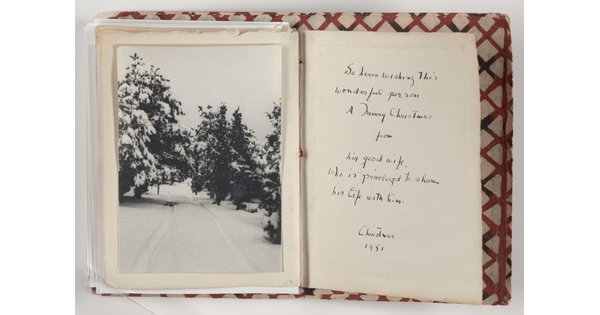 So here's wishing this
wonderful person
A Merry Christmas
from
his good wife,
who is privileged to share
his life with him.
Christmas
1951